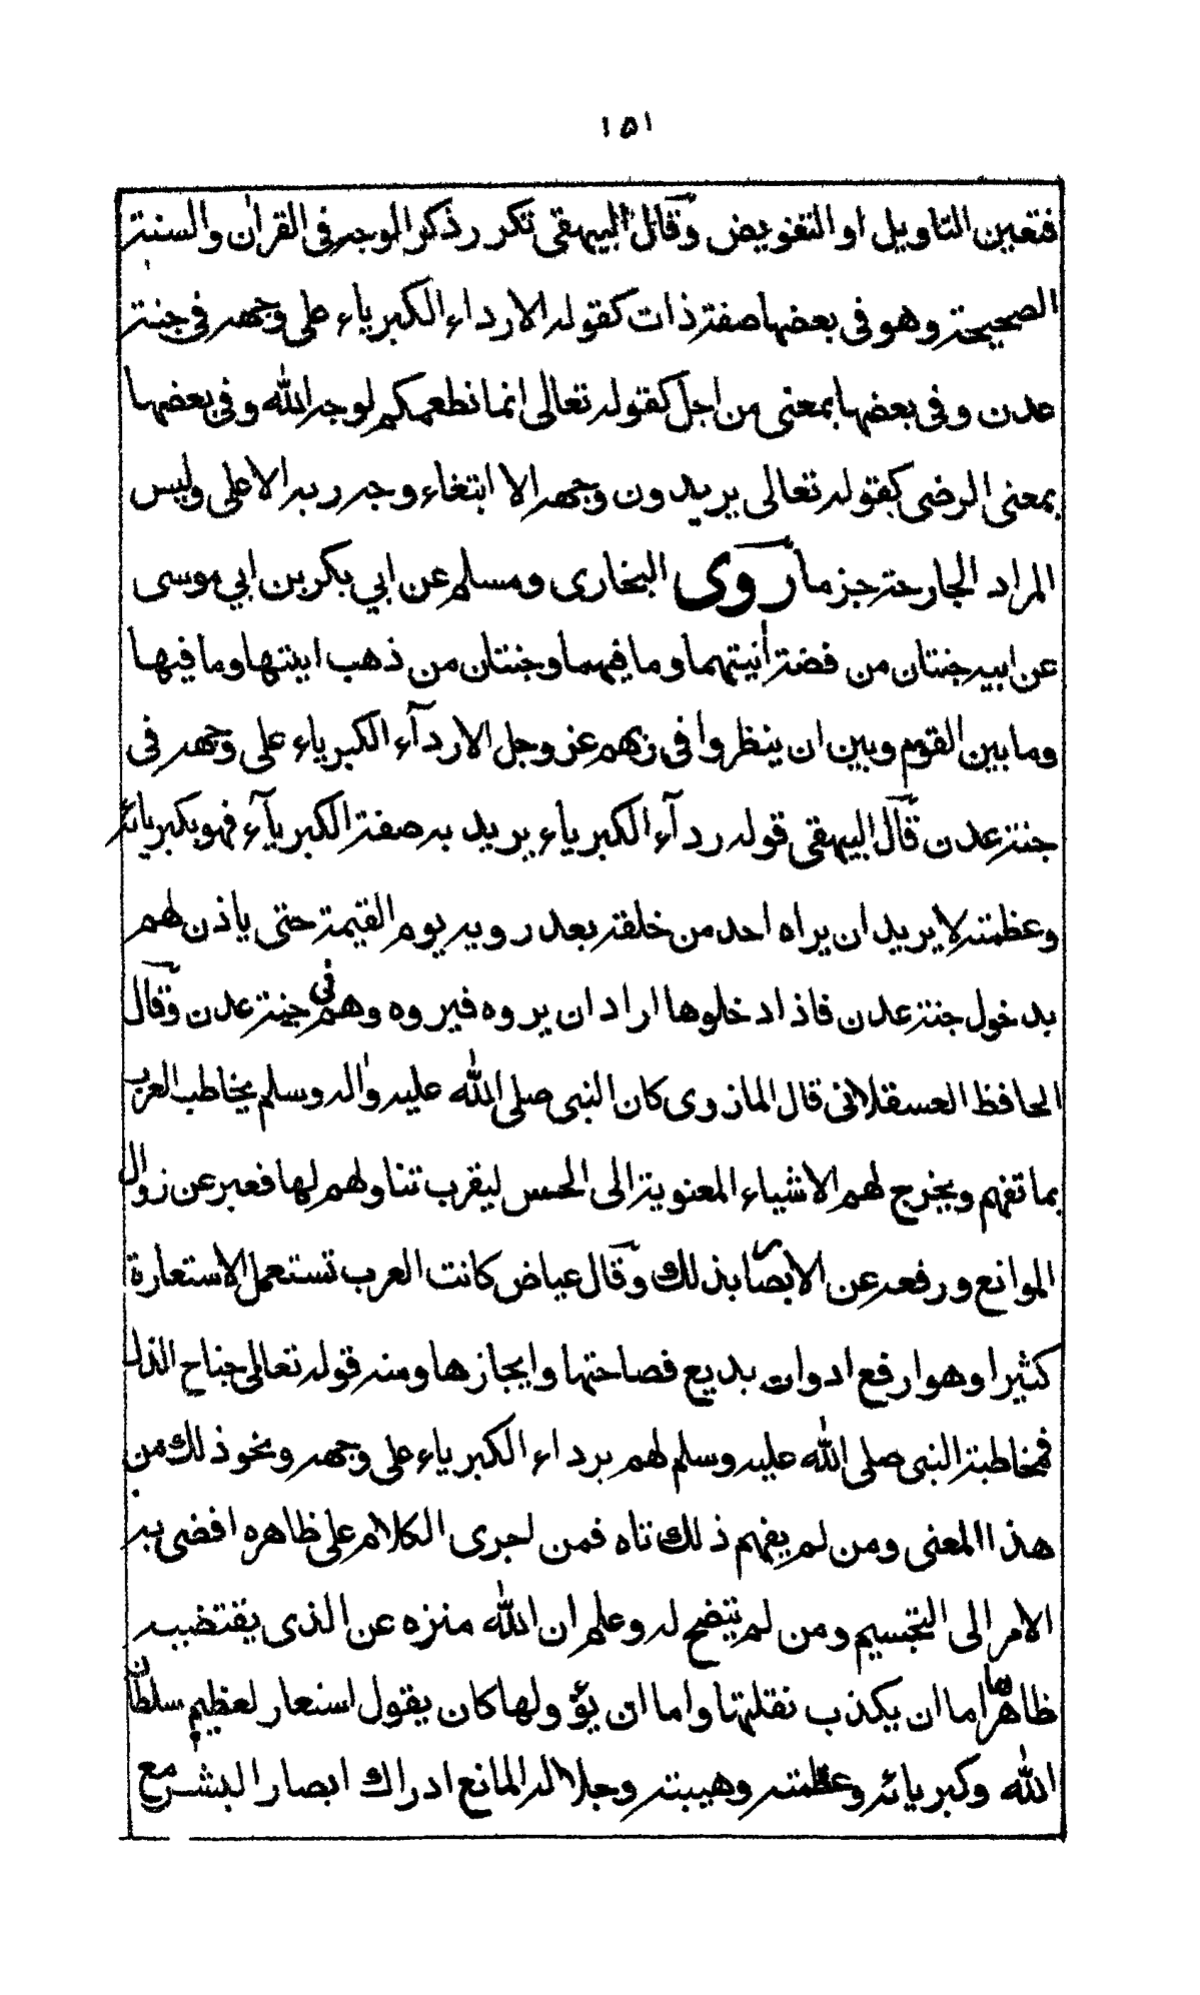 ١٥١
فتعين التاويل او التفويض وقال البيهقى تكرر ذكر الوجه فى القران والسنة
الصحيحة وهو فى بعضها صفة ذات كقوله الا رداء الكبرياء على وجهه فى جنة
عدن وفى بعضها بمعنى من اجل كقوله تعالى انما نطعمكم لوجه الله وفى بعضها
بمعنى الرضى كقوله تعالى يريدون وجهه الا ابتغاء وجه ربه الاعلى وليس
المراد الجارحة جزما روى البخارى ومسلم عن ابي بكر بن ابي موسى
عن ابيه جنتان من فضة انيتهما وما فيهما وجنتان من ذهب انيتها وما فيها
وما بين القوم وبين ان ينظروا فى ربهم عز وجل الا ردآء الكبرياء على وجهه فى
جنة عدن قال البيهقى قوله ردآء الكبرياء يريد به صفة الكبريآء فهو بكبريائه
وعظمته لا يريد ان يراه احد من خلقه بعد رويه يوم القيمة حتى ياذن لهم
بدخول جنة عدن فاذا دخلوها اراد ان يروه فيروه وهم فى جنة عدن وقال
الحافظ العسقلانى قال المازوى كان النبى صلى الله عليه واله وسلم يخاطب العرب
بما تفهم ويخرج لهم الاشياء المعنوية الى الحس ليقرب تناولهم لها فعبر عن زوال
الموانع ورفعه عن الابصا بذلك وقال عياض كانت العرب تستعمل الاستعارة
كثيرا وهو ارفع ادوات بديع فصاحتها وايجازها ومنه قوله تعالى جناح الذل
فمخاطبة النبى صلى الله عليه وسلم لهم برداء الكبرياء على وجهه ونحو ذلك من
هذا المعنى ومن لم يفهم ذلك تاه فمن اجرى الكلام على ظاهره افضى به
الامر الى التجسيم ومن لم يتضح له وعلم ان الله منزه عن الذى يقتضيه
ظاهرها اما ان يكذب نقلتها واما ان يؤولها كان يقول استعار لعظيم سلطان
الله وكبريائه وعظمته وهيبته وجلاله المانع ادراك ابصار البشر مع